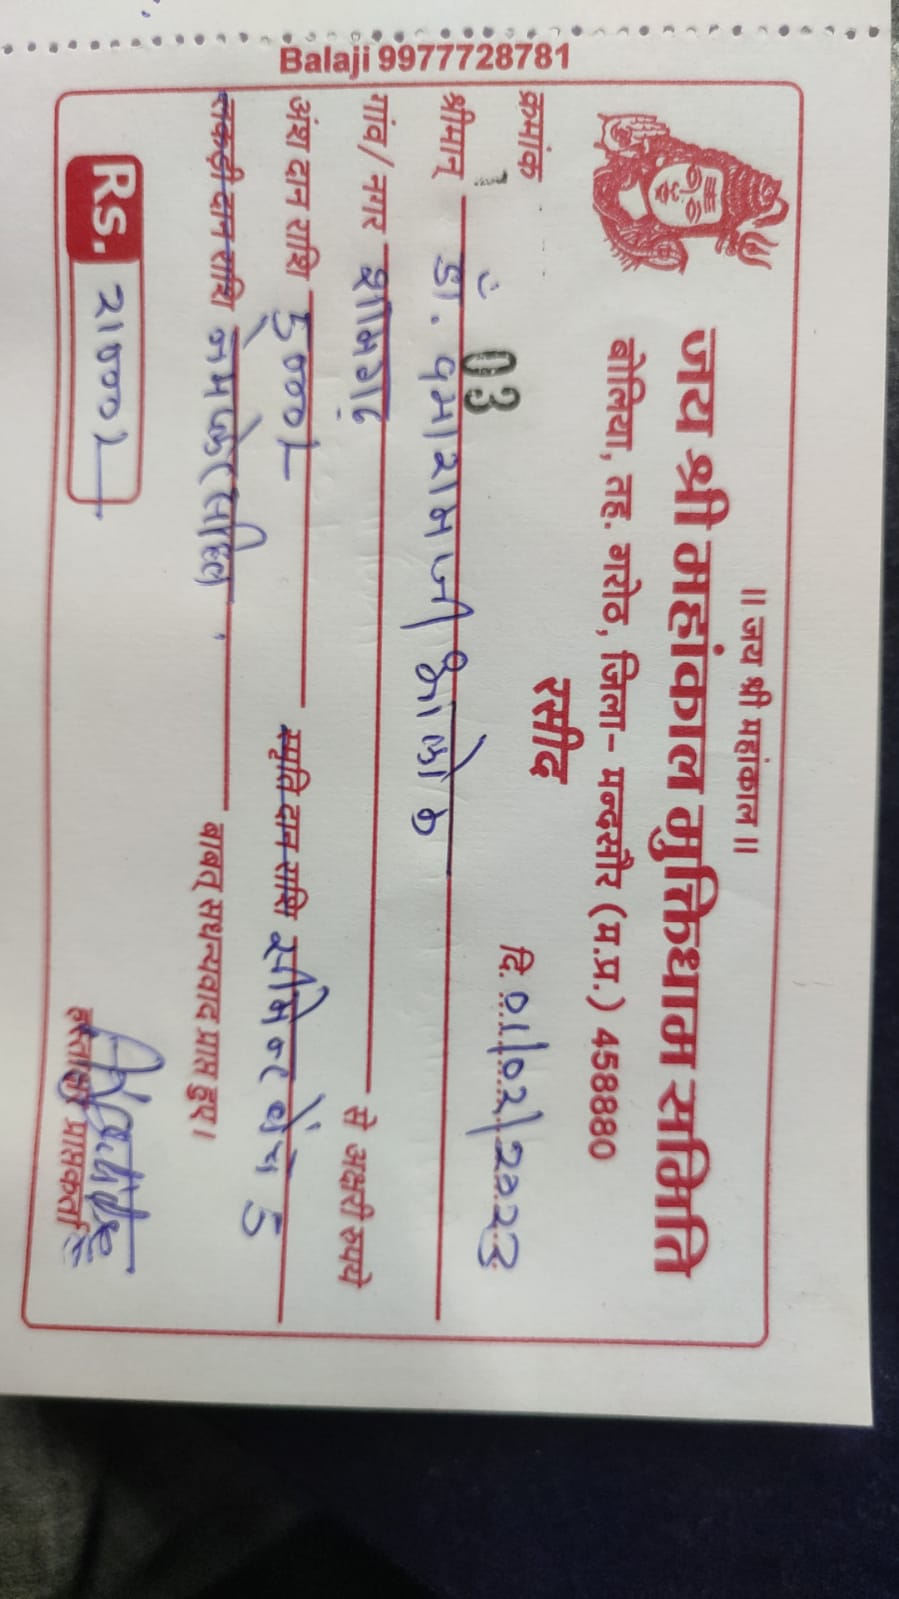 Balaji 9977728781
॥ जय श्री महांकाल ॥
जय श्री महांकाल मुक्तिधाम समिति
बोलिया, तह. गरोठ, जिला- मन्दसौर (म.प्र.) 458880
रसीद
क्रमांक 03 दि. 01/02/2023
श्रीमान् डॉ.
गांव/नगर शामगढ़ से अक्षरी रुपये
अंश दान राशि स्मृति दान राशि सीमेन्ट
लकड़ी दान राशि बाबत् सधन्यवाद प्राप्त हुए।
Rs. हस्ताक्षर प्राप्तकर्ता